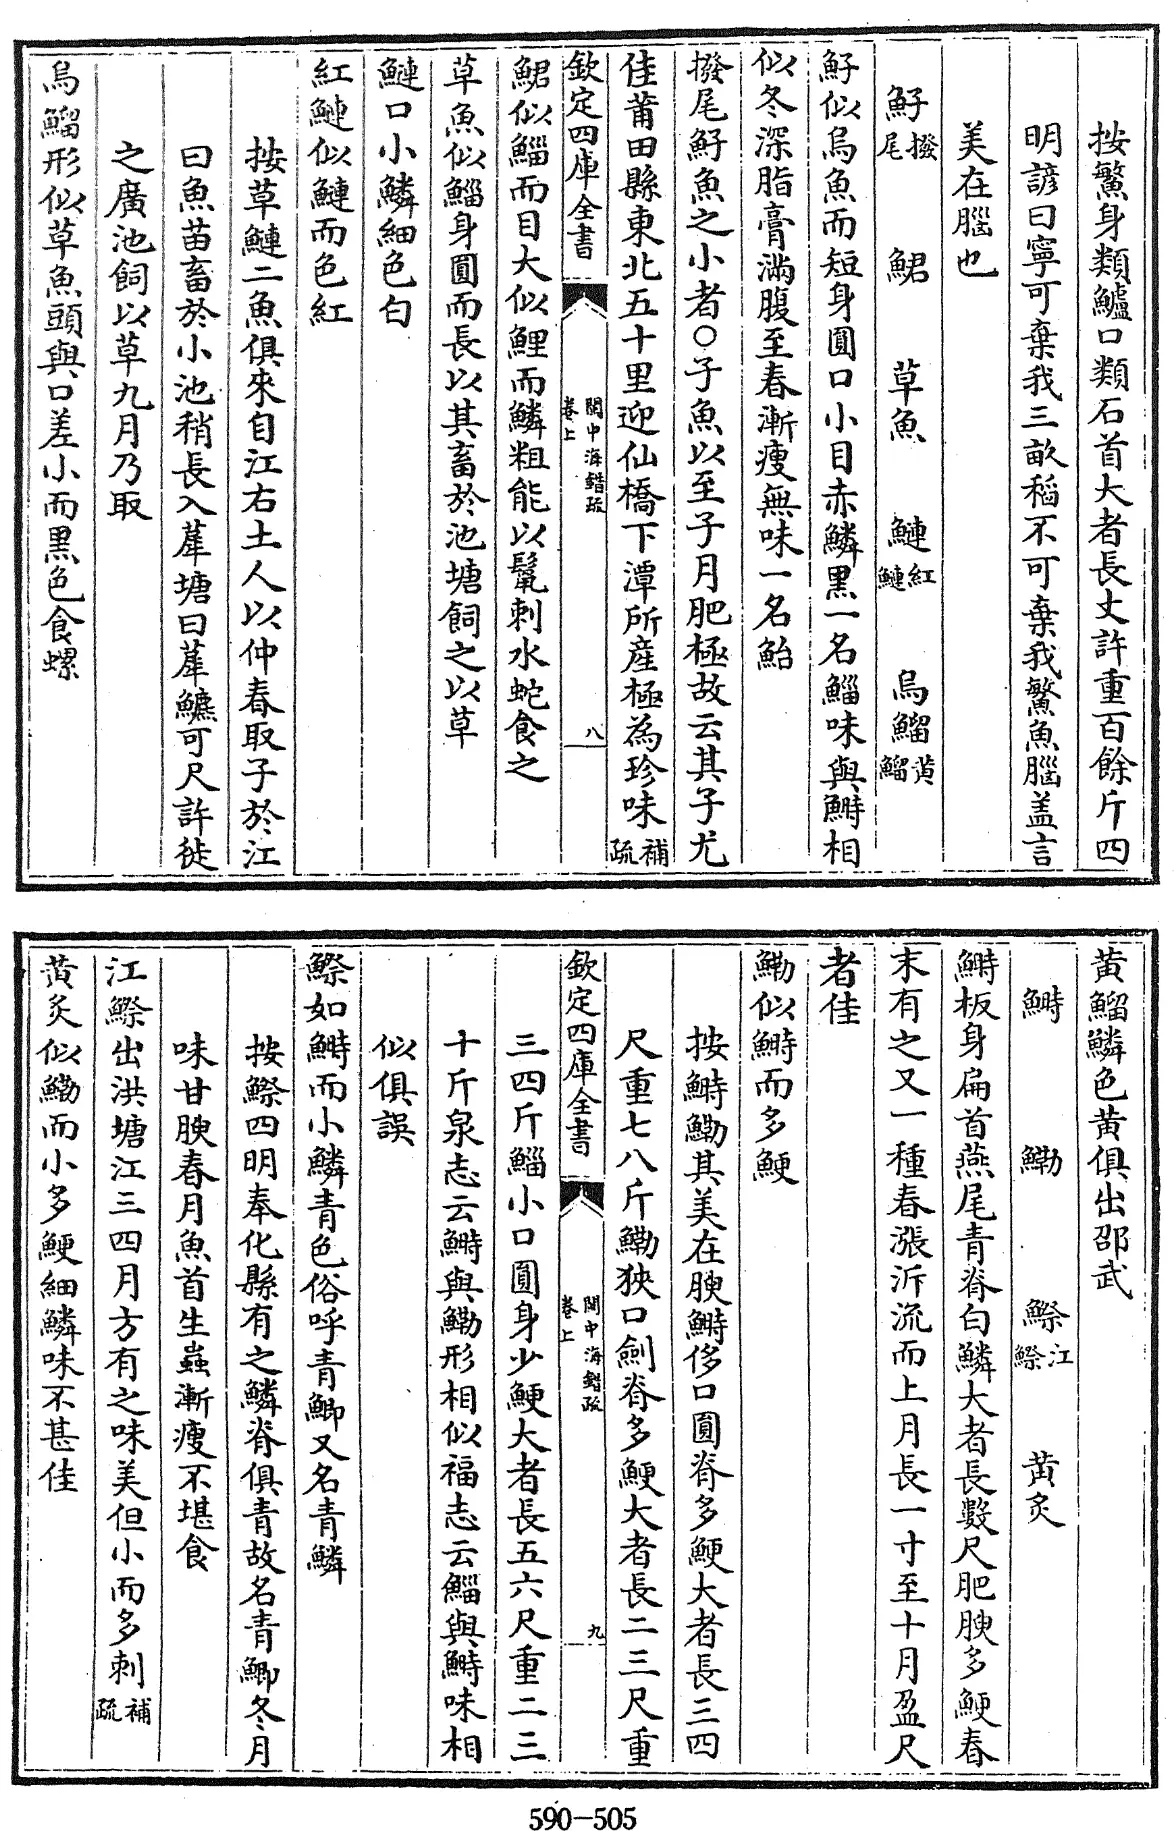 按鰵身類鱸口類石首大者長丈許重百餘斤四
明諺曰寧可棄我三畝稻不可棄我鰵魚腦盖言
美在腦也
䰵撥尾 鮶 草魚 鰱紅鰱 烏鰡黃鰡
䰵似烏魚而短身圓口小目赤鱗黑一名鯔味與鰣相
似冬深脂膏滿腹至春漸瘦無味一名鮐
撥尾䰵魚之小者○子魚以至子月肥極故云其子尤
佳莆田縣東北五十里迎仙橋下潭所産極為珍味補疏
欽定四庫全書 閩中海錯疏 卷上 八
鮶似鯔而目大似鯉而鱗粗能以鬣刺水蛇食之
草魚似鯔身圓而長以其畜於池塘飼之以草
鰱口小鱗細色白
紅鰱似鰱而色紅
按草鰱二魚俱來自江右土人以仲春取子於江
曰魚苗畜於小池稍長入𥴈塘曰𥴈𩼰可尺許徙
之廣池飼以草九月乃取
烏鰡形似草魚頭與口差小而黑色食螺
黃鰡鱗色黃俱出邵武
鰣 鰳 鰶江鰶 黃炙
鰣板身扁首燕尾青脊白鱗大者長數尺肥腴多鯁春
末有之又一種春漲泝流而上月長一寸至十月盈尺
者佳
鰳似鰣而多鯁
按鰣鰳其美在腴鰣侈口圓脊多鯁大者長三四
尺重七八斤鰳狹口劍脊多鯁大者長二三尺重
欽定四庫全書 閩中海錯疏 卷上 九
三四斤鯔小口圓身少鯁大者長五六尺重二三
十斤泉志云鰣與鰳形相似福志云鯔與鰣味相
似俱誤
鰶如鰣而小鱗青色俗呼青鯽又名青鱗
按鰶四明奉化縣有之鱗脊俱青故名青鯽冬月
味甘腴春月魚首生蟲漸瘦不堪食
江鰶出洪塘江三四月方有之味美但小而多刺補疏
黃炙似鰳而小多鯁細鱗味不甚佳
590-505